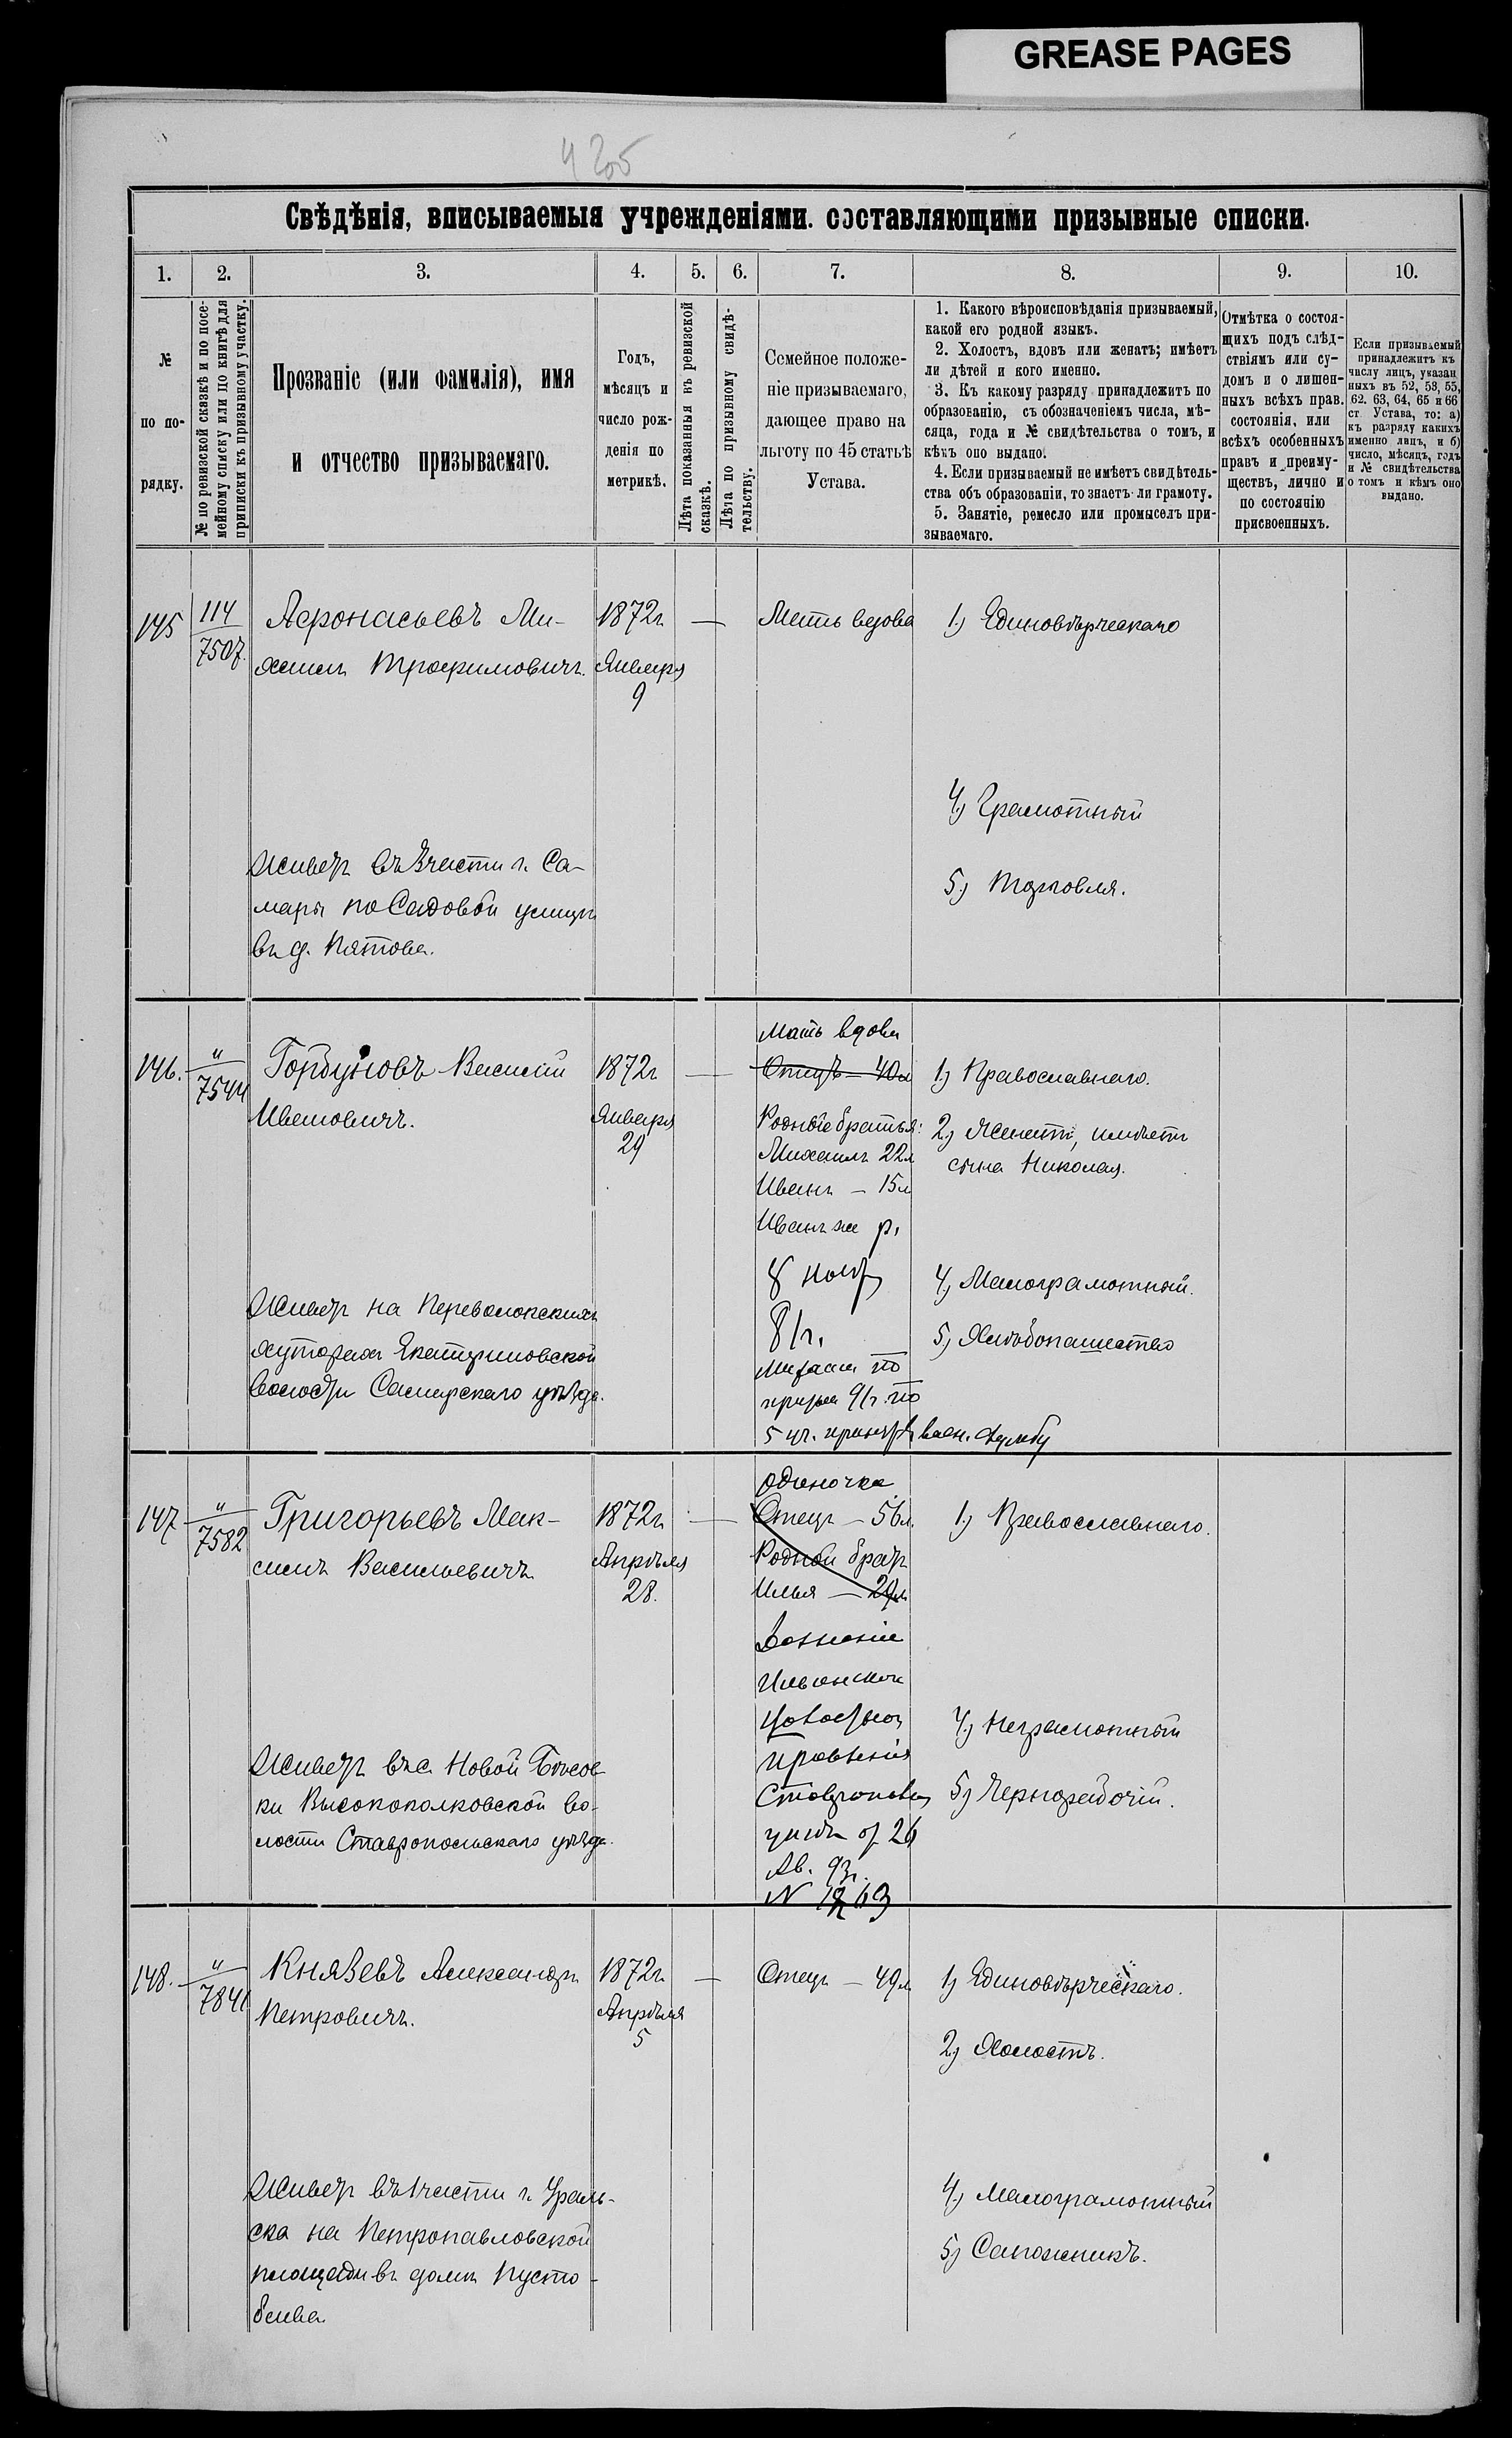 GREASE PAGES
Свѣдѣнія, вписываемыя учрежденіями. составляющими призывные списки.
1. 2. 3. 4. 5. 6. 7. 8. 9. 10.
№
по по-
рядку.
№ по ревизской сказкѣ и по посе-
мейному списку или по книгѣ для
приписки къ призывному участку.
Прозваніе (или фамилія), имя
и отчество призываемаго.
Годъ,
мѣсяцъ и
число рож-
денія по
метрикѣ.
Лѣта показанныя къ ревизской
сказкѣ.
Лѣта по призывному свидѣ-
тельству.
Семейное положе-
ніе призываемаго,
дающее право на
льготу по 45 статьѣ
Устава.
1. Какого вѣроисповѣданія призываемый,
какой его родной языкъ.
2. Холостъ, вдовъ или женатъ; имѣетъ
ли дѣтей и кого именно.
3. Къ какому разряду принадлежитъ по
образованію, съ обозначеніемъ числа, мѣ-
сяца, года и № свидѣтельства о томъ, и
кѣмъ оно выдано.
4. Если призываемый не имѣетъ свидѣтель-
ства объ образованіи, то знаетъ ли грамоту.
5. Занятіе, ремесло или промыселъ при-
зываемаго.
Отмѣтка о состоя-
щихъ подъ слѣд-
ствіямъ или су-
домъ и о лишен-
ныхъ всѣхъ прав.
состоянія, или
всѣхъ особенныхъ
правъ и преиму-
ществъ, лично и
по состоянію
присвоенныхъ.
Если призываемый
принадлежитъ къ
числу лицъ, указан
ныхъ въ 52, 53, 55,
62. 63, 64, 65 и 66
ст Устава, то: а)
къ разряду какихъ
именно лицъ, и б)
число, мѣсяцъ, годъ
и № свидѣтельства
о томъ и кѣмъ оно
выдано.
145 114
7507.
Афонасьевъ Ми-
хаилъ Трофимовичъ.
1872г.
Января
9
—
Мать вдова
1.) Единовѣрческаго
4.) Грамотный
5.) Торговля.
Живетъ въ 3 части г. Са-
мары по Садовой улицѣ
въ д. Пятова.
146. "
7544
Горбуновъ Василій
Ивановичъ.
1872г
Января
29
—
Мать вдова
Отецъ — 40л
Родные братья:
Михаилъ 22л
Иванъ — 15л
Иванъ же р.
8 нояб
81г.
5 уч. принятъ в воен. службу
1.) Православнаго.
2.) Женатъ, имѣетъ
сына Николая.
4.) Малограмотный.
5.) Хлѣбопашество
Живетъ на Переволокскихъ
хуторахъ Екатериновской
волости Самарскаго уѣзда.
147 "
7582
Григорьевъ Мак-
симъ Васильевичъ
1872г.
Апрѣля
28.
—
одиночка
Отецъ — 56л.
Родной братъ
Илья — 29л.
правленія
уѣзда от 26
Ав. 93г.
N 1263
1.) Православнаго.
4.) Неграмотный
5.) Чернорабочій.
Живетъ въ с. Новой Бѣсов-
ки Высокополковской во-
лости Ставропольскаго уѣзда.
148. "
7841
Князевъ Александръ
Петровичъ.
1872г.
Апрѣля
5
—
Отецъ — 49л
1.) Единовѣрческаго.
2.) Холостъ.
4.) Малограмотный
5.) Сапожникъ.
Живетъ въ 1 части г. Ураль-
ска на Петропавловской
площади въ домѣ Пусто-
баева